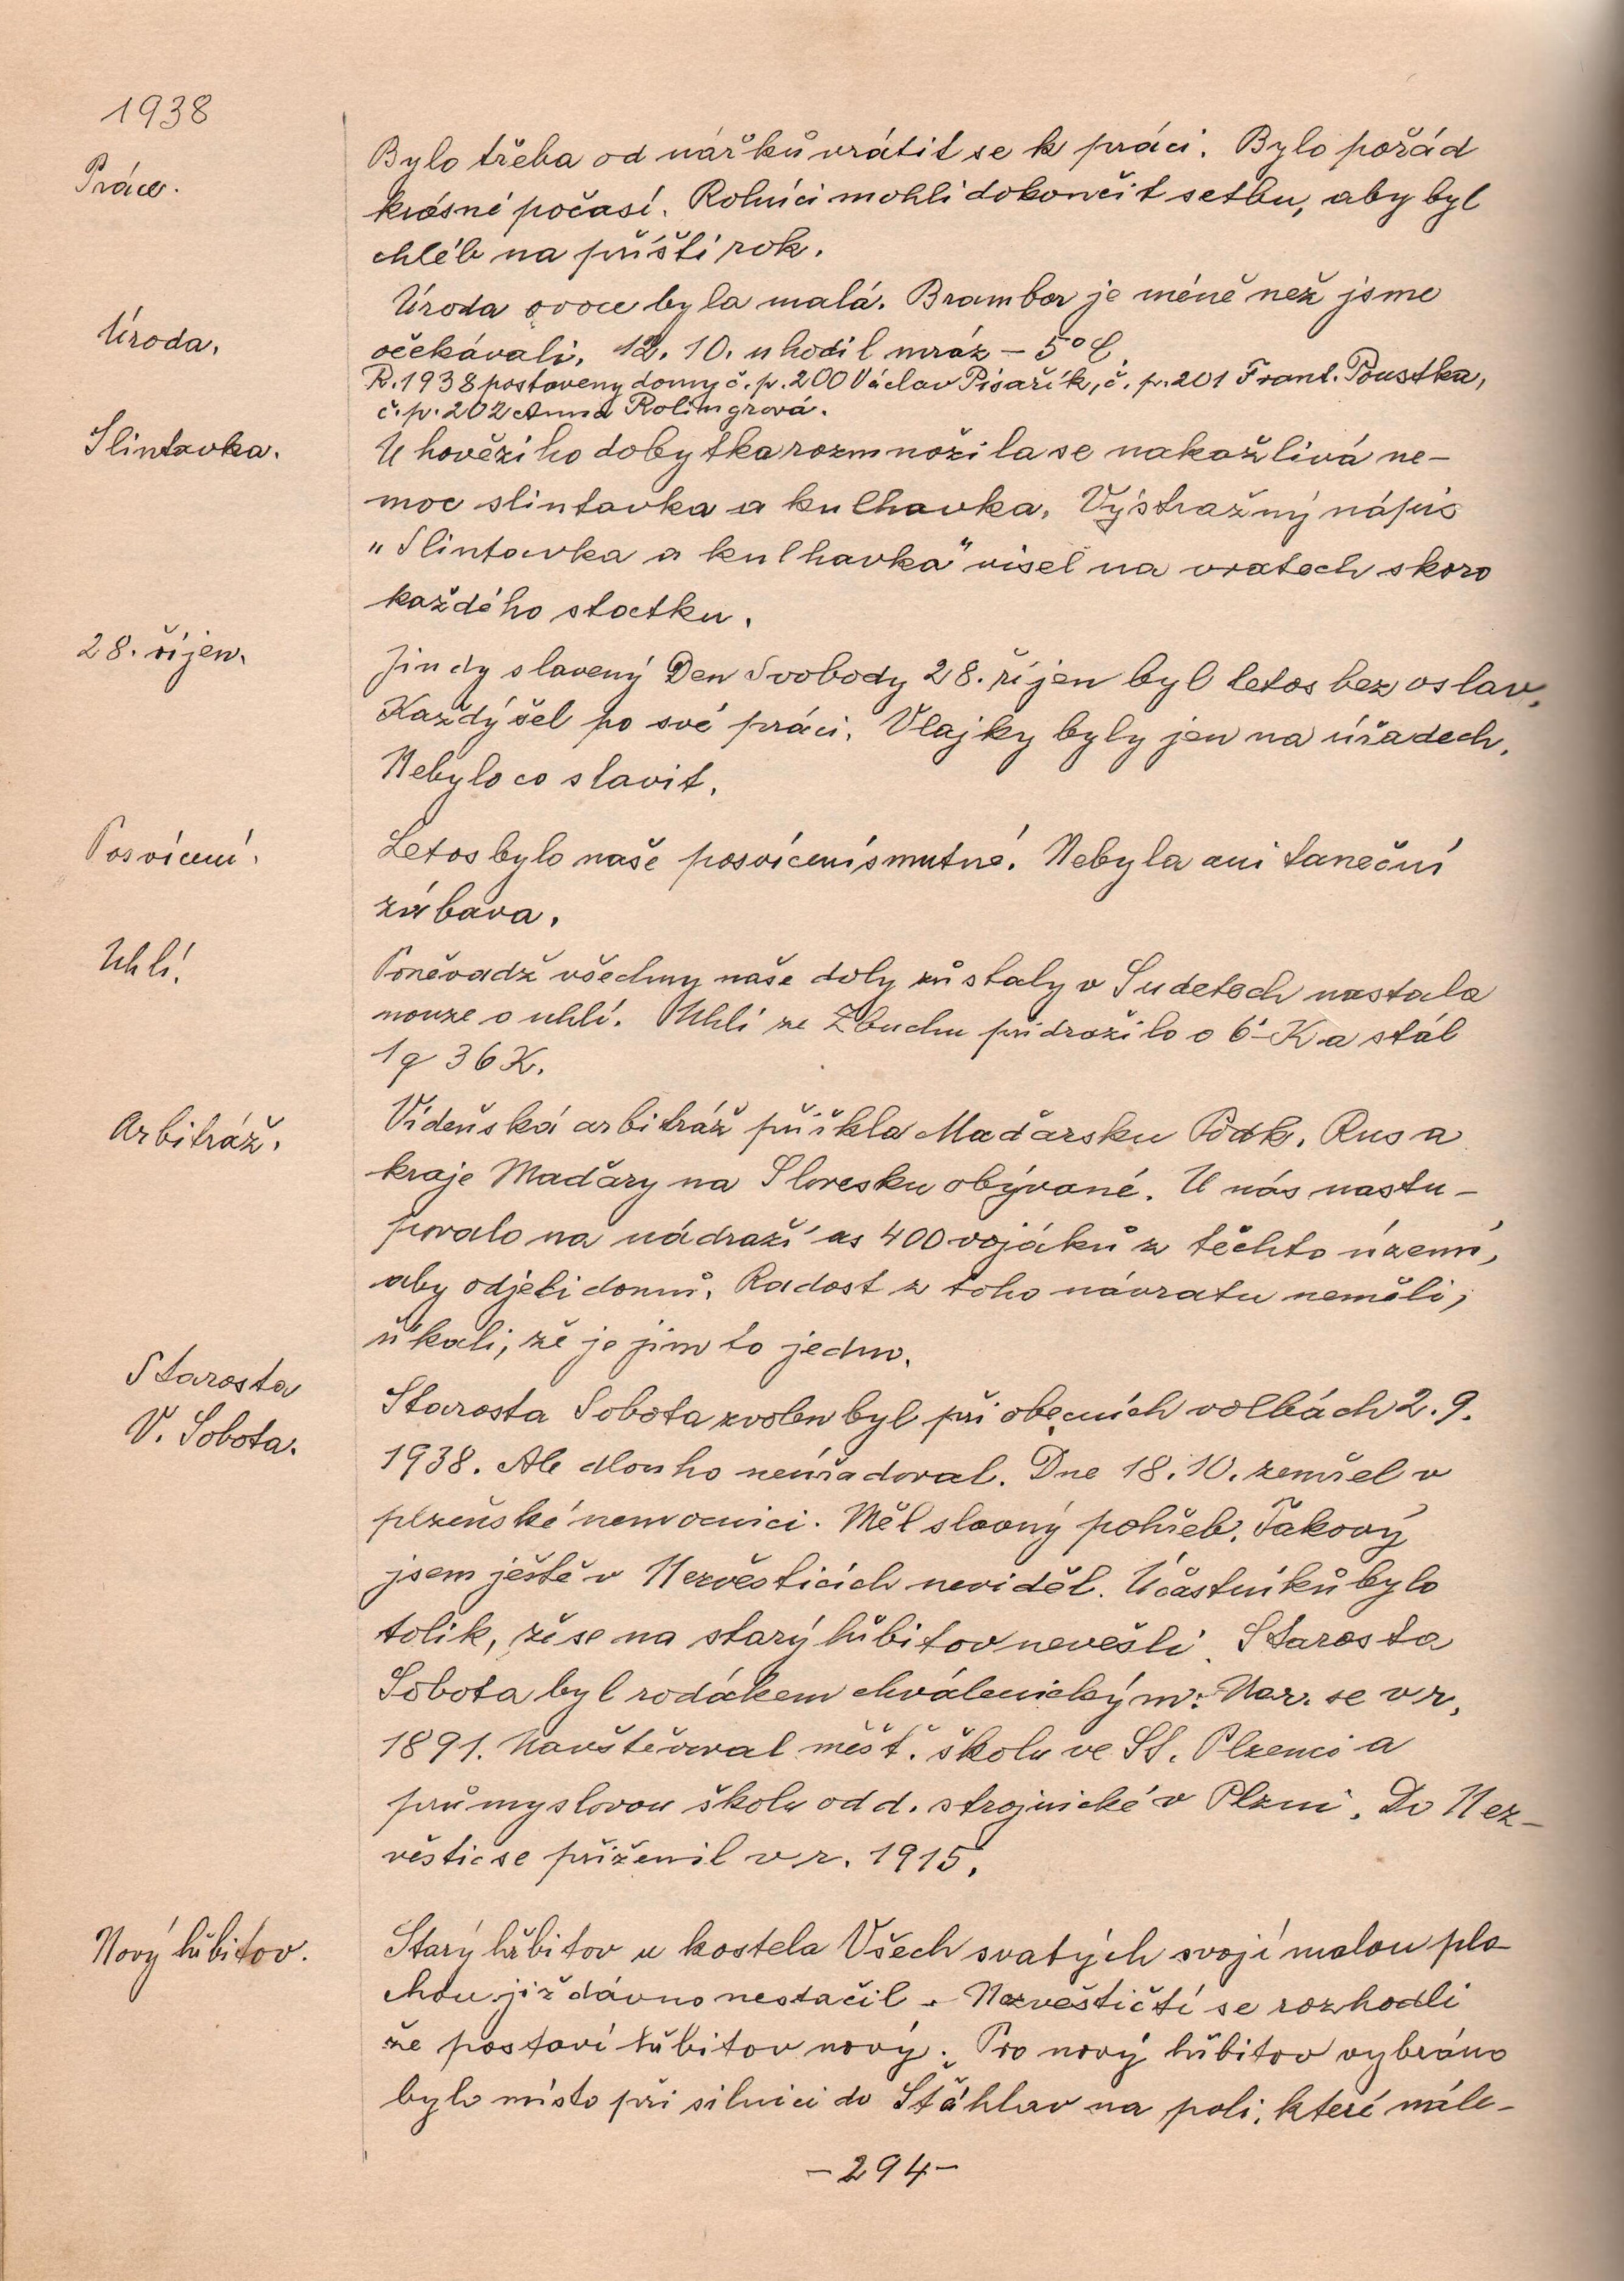 1938
Práce.
Bylo třeba od nářků vrátit se k práci. Bylo pořád
krásné počasí. Rolníci mohli dokončit setbu, aby byl
chléb na příští rok.
Úroda.
Úroda ovoce byla malá. Brambor je méně než jsme
očekávali. 12. 10. uhodil mráz – 5° C.
R. 1938 postaveny domy č. p. 200 Václav Pisařík, č. p. 201 Frant. Poustka,
č. p. 202 Anna Rolingrová.
Slintavka.
U hovězího dobytka rozmnožila se nakažlivá ne-
moc slintavka a kulhavka. Výstražný nápis
„Slintavka a kulhavka" visel na vratech skoro
každého statku.
28. říjen.
Jindy slavený Den Svobody 28. říjen byl letos bez oslav.
Každý šel po své práci. Vlajky byly jen na úřadech.
Nebylo co slavit.
Posvícení.
Letos bylo naše posvícení smutné. Nebyla ani taneční
zábava.
Uhlí.
Poněvadž všechny naše doly zůstaly v Sudetech nastala
nouze o uhlí. Uhlí ze Zbuchu přidražilo o 6 K a stál
1q 36 K.
Arbitráž.
Vídeňská arbitráž přiřkla Maďarsku Podk. Rus a
kraje Maďary na Slovesku obývané. U nás nastu-
povalo na nádraží as 400 vojáků z těchto území,
aby odjeli domů. Radost z toho návratu neměli,
říkali, že je jim to jedno.
Starosta
V. Sobota.
Starosta Sobota zvolen byl při obecních volbách 2. 9.
1938. Ale dlouho neúřadoval. Dne 18. 10. zemřel v
plzeňské nemocnici. Měl slavný pohřeb. Takový
jsem ještě v Nezvěsticích neviděl. Účastníků bylo
tolik, že se na starý hřbitov nevešli. Starosta
Sobota byl rodákem chválenickým. Nar. se v r.
1891. Navštěvoval měšť. školu ve St. Plzenci a
průmyslovou školu odd. strojnické v Plzni. Do Nez-
věstic se přiženil v r. 1915.
Nový hřbitov.
Starý hřbitov u kostela Všech svatých svojí malou plo-
chou již dávno nestačil. Nezvěstičtí se rozhodli
že postaví hřbitov nový. Pro nový hřbitov vybráno
bylo místo při silnici do Štáhlav na poli, které nále-
– 294 –